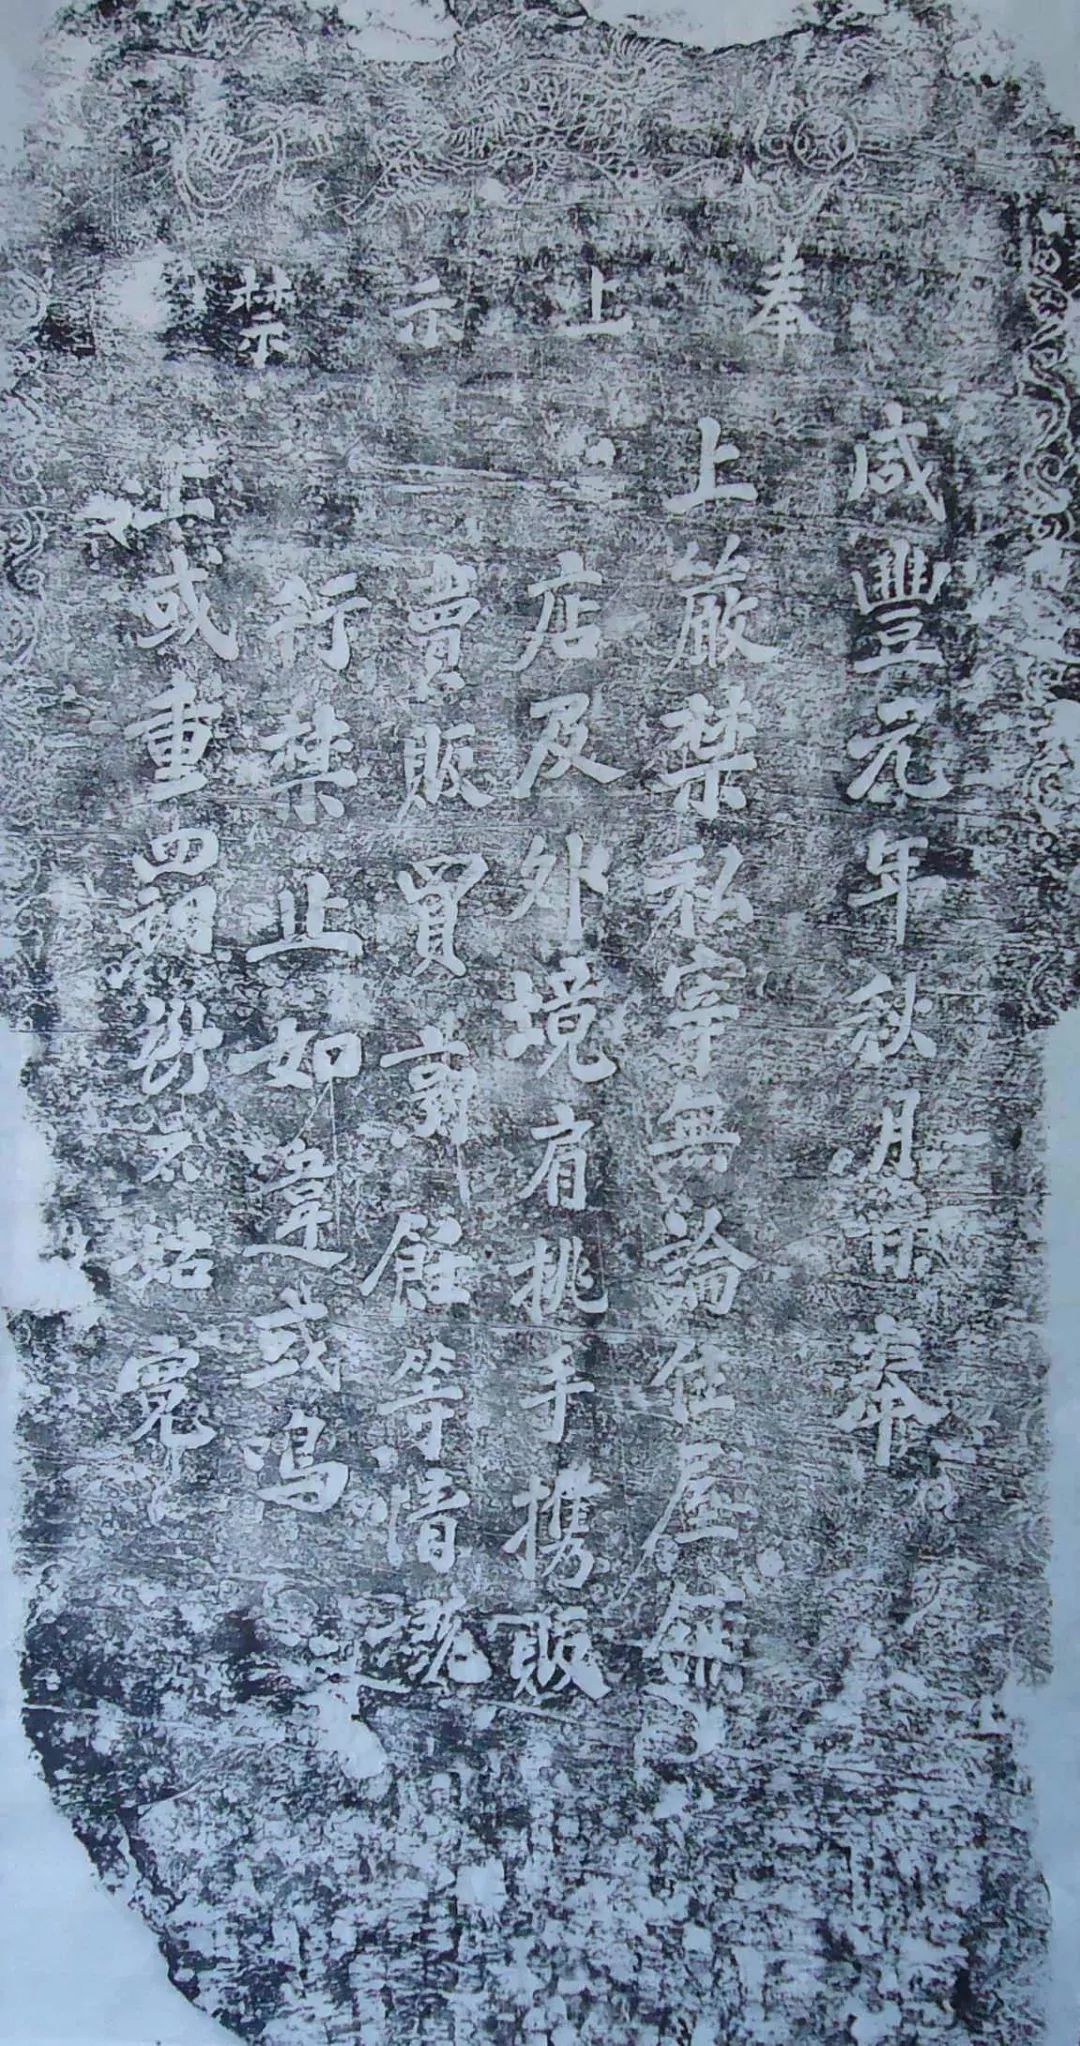 奉上示禁
咸豐元年秋月曾奉
上嚴禁私宰無論住屋舖
店及外境肩挑手携販
賣販買等情概
行禁止如違或鸣
上或重罰斷不姑寬